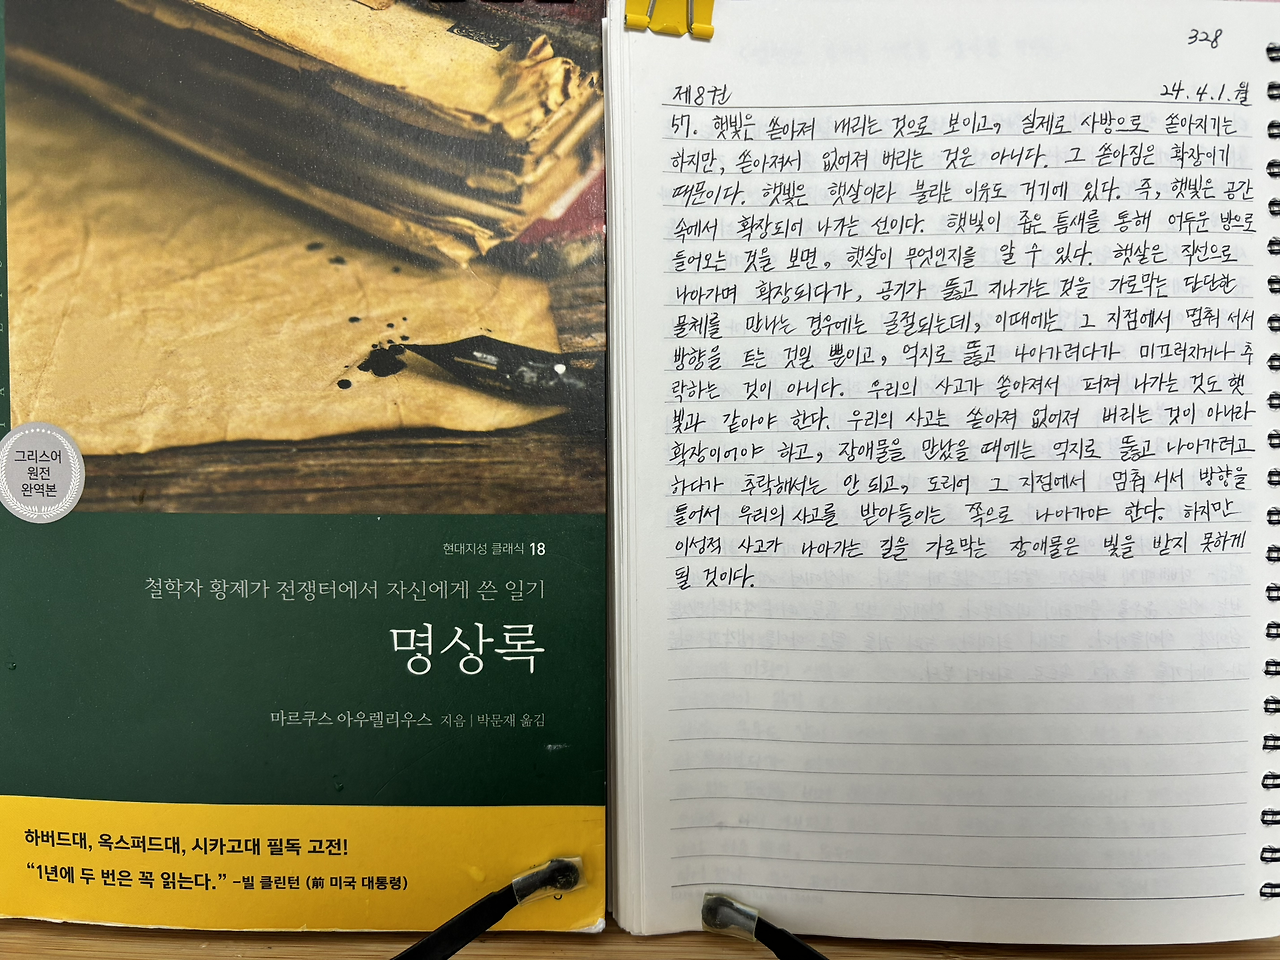 그리스어
원전
완역본
현대지성 클래식 18
철학자 황제가 전쟁터에서 자신에게 쓴 일기
명상록
마르쿠스 아우렐리우스 지음 | 박문재 옮김
하버드대, 옥스퍼드대, 시카고대 필독 고전!
“1년에 두 번은 꼭 읽는다.” –빌 클린턴 (前 미국 대통령)
328
제8권 24.4.1.월
57. 햇빛은 쏟아져 내리는 것으로 보이고, 실제로 사방으로 쏟아지기는
하지만, 쏟아져서 없어져 버리는 것은 아니다. 그 쏟아짐은 확장이기
때문이다. 햇빛은 햇살이라 불리는 이유도 거기에 있다. 즉, 햇빛은 공간
속에서 확장되어 나가는 선이다. 햇빛이 좁은 틈새를 통해 어두운 방으로
들어오는 것을 보면, 햇살이 무엇인지를 알 수 있다. 햇살은 직선으로
나아가며 확장되다가, 공기가 뚫고 지나가는 것을 가로막는 단단한
물체를 만나는 경우에는 굴절되는데, 이때에는 그 지점에서 멈춰 서서
방향을 트는 것일 뿐이고, 억지로 뚫고 나아가려다가 미끄러지거나 추
락하는 것이 아니다. 우리의 사고가 쏟아져서 퍼져 나가는 것도 햇
빛과 같아야 한다. 우리의 사고는 쏟아져 없어져 버리는 것이 아니라
확장이어야 하고, 장애물을 만났을 때에는 억지로 뚫고 나아가려고
하다가 추락해서는 안 되고, 도리어 그 지점에서 멈춰 서서 방향을
틀어서 우리의 사고를 받아들이는 쪽으로 나아가야 한다. 하지만
이성적 사고가 나아가는 길을 가로막는 장애물은 빛을 받지 못하게
될 것이다.